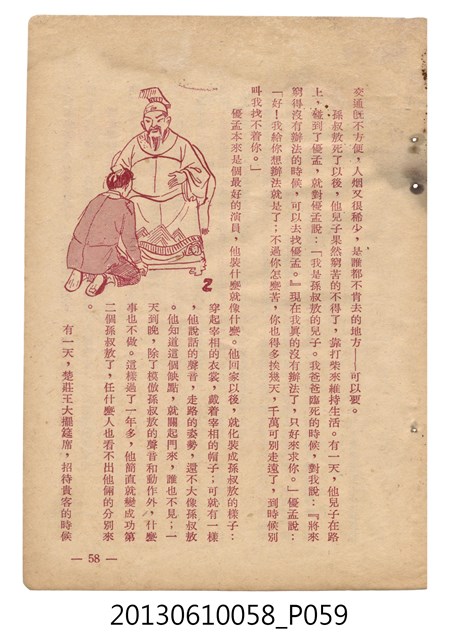 交通既不方便，人烟又很稀少，是誰都不肯去的地方——可以要。
孫叔敖死了以後，他兒子果然窮苦的不得了，靠打柴來維持生活。有一天，他兒子在路
上，碰到了優孟，就對優孟說：「我是孫叔敖的兒子。我爸爸臨死的時候，對我說：『將來
窮得沒有辦法的時候，可以去找優孟。』現在我眞的沒有辦法了，只好來求你。」優孟說：
「好！我給你想辦法就是了；不過你怎麼苦，你也得多挨幾天，千萬可別走遠了，到時候別
叫我找不着你。」
優孟本來是個最好的演員，他裝什麼就像什麼。他回家以後，就化裝成孫叔敖的樣子：
穿起宰相的衣裳，戴着宰相的帽子；可就有一樣
，他說話的聲音，走路的姿勢，還不大像孫叔敖
。他知道這個缺點，就關起門來，誰也不見；一
天到晚，除了模倣孫叔敖的聲音和動作外，什麼
事也不做。這樣過了一年多，他簡直就變成功第
二個孫叔敖了，任什麼人也看不出他倆的分別來
。
有一天，楚莊王大擺筵席，招待貴客的時候
2
— 58 —
20130610058_P059